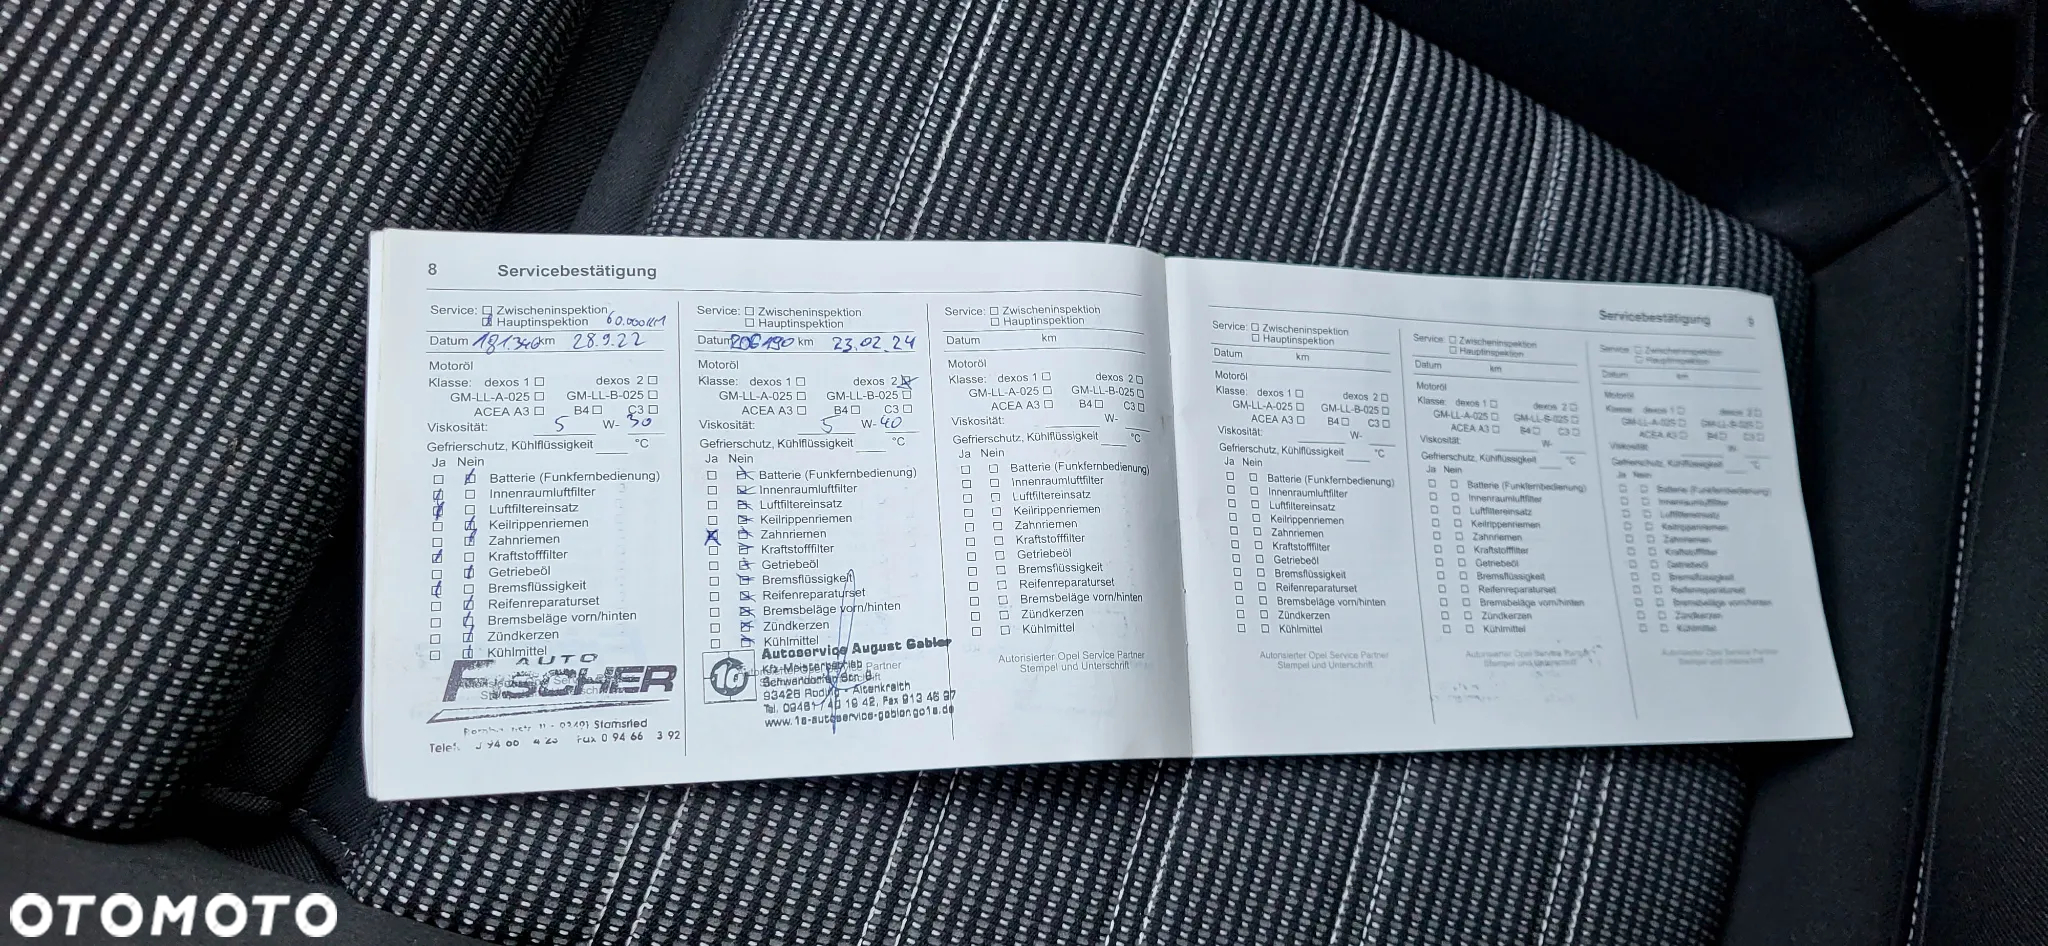 8 Servicebestätigung
Service: Zwischeninspektion
Hauptinspektion 60.000KM
Datum 181.346 km 28.9.22
Motoröl
Klasse: dexos 1 dexos 2
GM-LL-A-025 GM-LL-B-025
ACEA A3 B4 C3
Viskosität: 5 W- 30
Gefrierschutz, Kühlflüssigkeit °C
Ja Nein
Batterie (Funkfernbedienung)
Innenraumluftfilter
Luftfiltereinsatz
Keilrippenriemen
Zahnriemen
Kraftstofffilter
Getriebeöl
Bremsflüssigkeit
Reifenreparaturset
Bremsbeläge vorn/hinten
Zündkerzen
Kühlmittel
AUTO
FISCHER
Stamsried
Fax 0 94 66 3 92
Service: Zwischeninspektion
Hauptinspektion
Datum 206190 km 23.02.24
Motoröl
Klasse: dexos 1 dexos 2
GM-LL-A-025 GM-LL-B-025
ACEA A3 B4 C3
Viskosität: 5 W- 40
Gefrierschutz, Kühlflüssigkeit °C
Ja Nein
Batterie (Funkfernbedienung)
Innenraumluftfilter
Luftfiltereinsatz
Keilrippenriemen
Zahnriemen
Kraftstofffilter
Getriebeöl
Bremsflüssigkeit
Reifenreparaturset
Bremsbeläge vorn/hinten
Zündkerzen
Kühlmittel
Autoservice August Gabler
Kfz-Meisterbetrieb
Schwandorfer Str. 8
93426 Roding - Altenkreith
www.1a-autoservice-gabler.go1a.de
Service: Zwischeninspektion
Hauptinspektion
Datum km
Motoröl
Klasse: dexos 1 dexos 2
GM-LL-A-025 GM-LL-B-025
ACEA A3 B4 C3
Viskosität: W-
Gefrierschutz, Kühlflüssigkeit °C
Ja Nein
Batterie (Funkfernbedienung)
Innenraumluftfilter
Luftfiltereinsatz
Keilrippenriemen
Zahnriemen
Kraftstofffilter
Getriebeöl
Bremsflüssigkeit
Reifenreparaturset
Bremsbeläge vorn/hinten
Zündkerzen
Kühlmittel
Autorisierter Opel Service Partner
Stempel und Unterschrift
Servicebestätigung 9
Service: Zwischeninspektion
Hauptinspektion
Datum km
Motoröl
Klasse: dexos 1 dexos 2
GM-LL-A-025 GM-LL-B-025
ACEA A3 B4 C3
Viskosität: W-
Gefrierschutz, Kühlflüssigkeit °C
Ja Nein
Batterie (Funkfernbedienung)
Innenraumluftfilter
Luftfiltereinsatz
Keilrippenriemen
Zahnriemen
Kraftstofffilter
Getriebeöl
Bremsflüssigkeit
Reifenreparaturset
Bremsbeläge vorn/hinten
Zündkerzen
Kühlmittel
Autorisierter Opel Service Partner
Stempel und Unterschrift
Service: Zwischeninspektion
Hauptinspektion
Datum km
Motoröl
Klasse: dexos 1 dexos 2
GM-LL-A-025 GM-LL-B-025
ACEA A3 B4 C3
Viskosität: W-
Gefrierschutz, Kühlflüssigkeit °C
Ja Nein
Batterie (Funkfernbedienung)
Innenraumluftfilter
Luftfiltereinsatz
Keilrippenriemen
Zahnriemen
Kraftstofffilter
Getriebeöl
Bremsflüssigkeit
Reifenreparaturset
Bremsbeläge vorn/hinten
Zündkerzen
Kühlmittel
Autorisierter Opel Service Partner
Stempel und Unterschrift
Service: Zwischeninspektion
Hauptinspektion
Datum km
Motoröl
Klasse: dexos 1 dexos 2
GM-LL-A-025 GM-LL-B-025
ACEA A3 B4 C3
Viskosität: W-
Gefrierschutz, Kühlflüssigkeit °C
Ja Nein
Batterie (Funkfernbedienung)
Innenraumluftfilter
Luftfiltereinsatz
Keilrippenriemen
Zahnriemen
Kraftstofffilter
Getriebeöl
Bremsflüssigkeit
Reifenreparaturset
Bremsbeläge vorn/hinten
Zündkerzen
Kühlmittel
Autorisierter Opel Service Partner
Stempel und Unterschrift
OTOMOTO